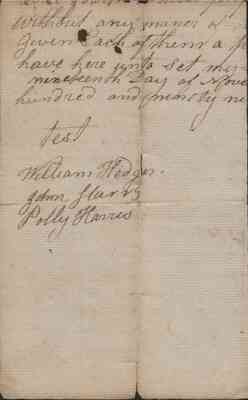 without any maner
Given Each of them a
have here unto Set my
nineteenth Day of Nove
hundred and ninety ni
test
William Hedger.
John Harris
Polly Harris